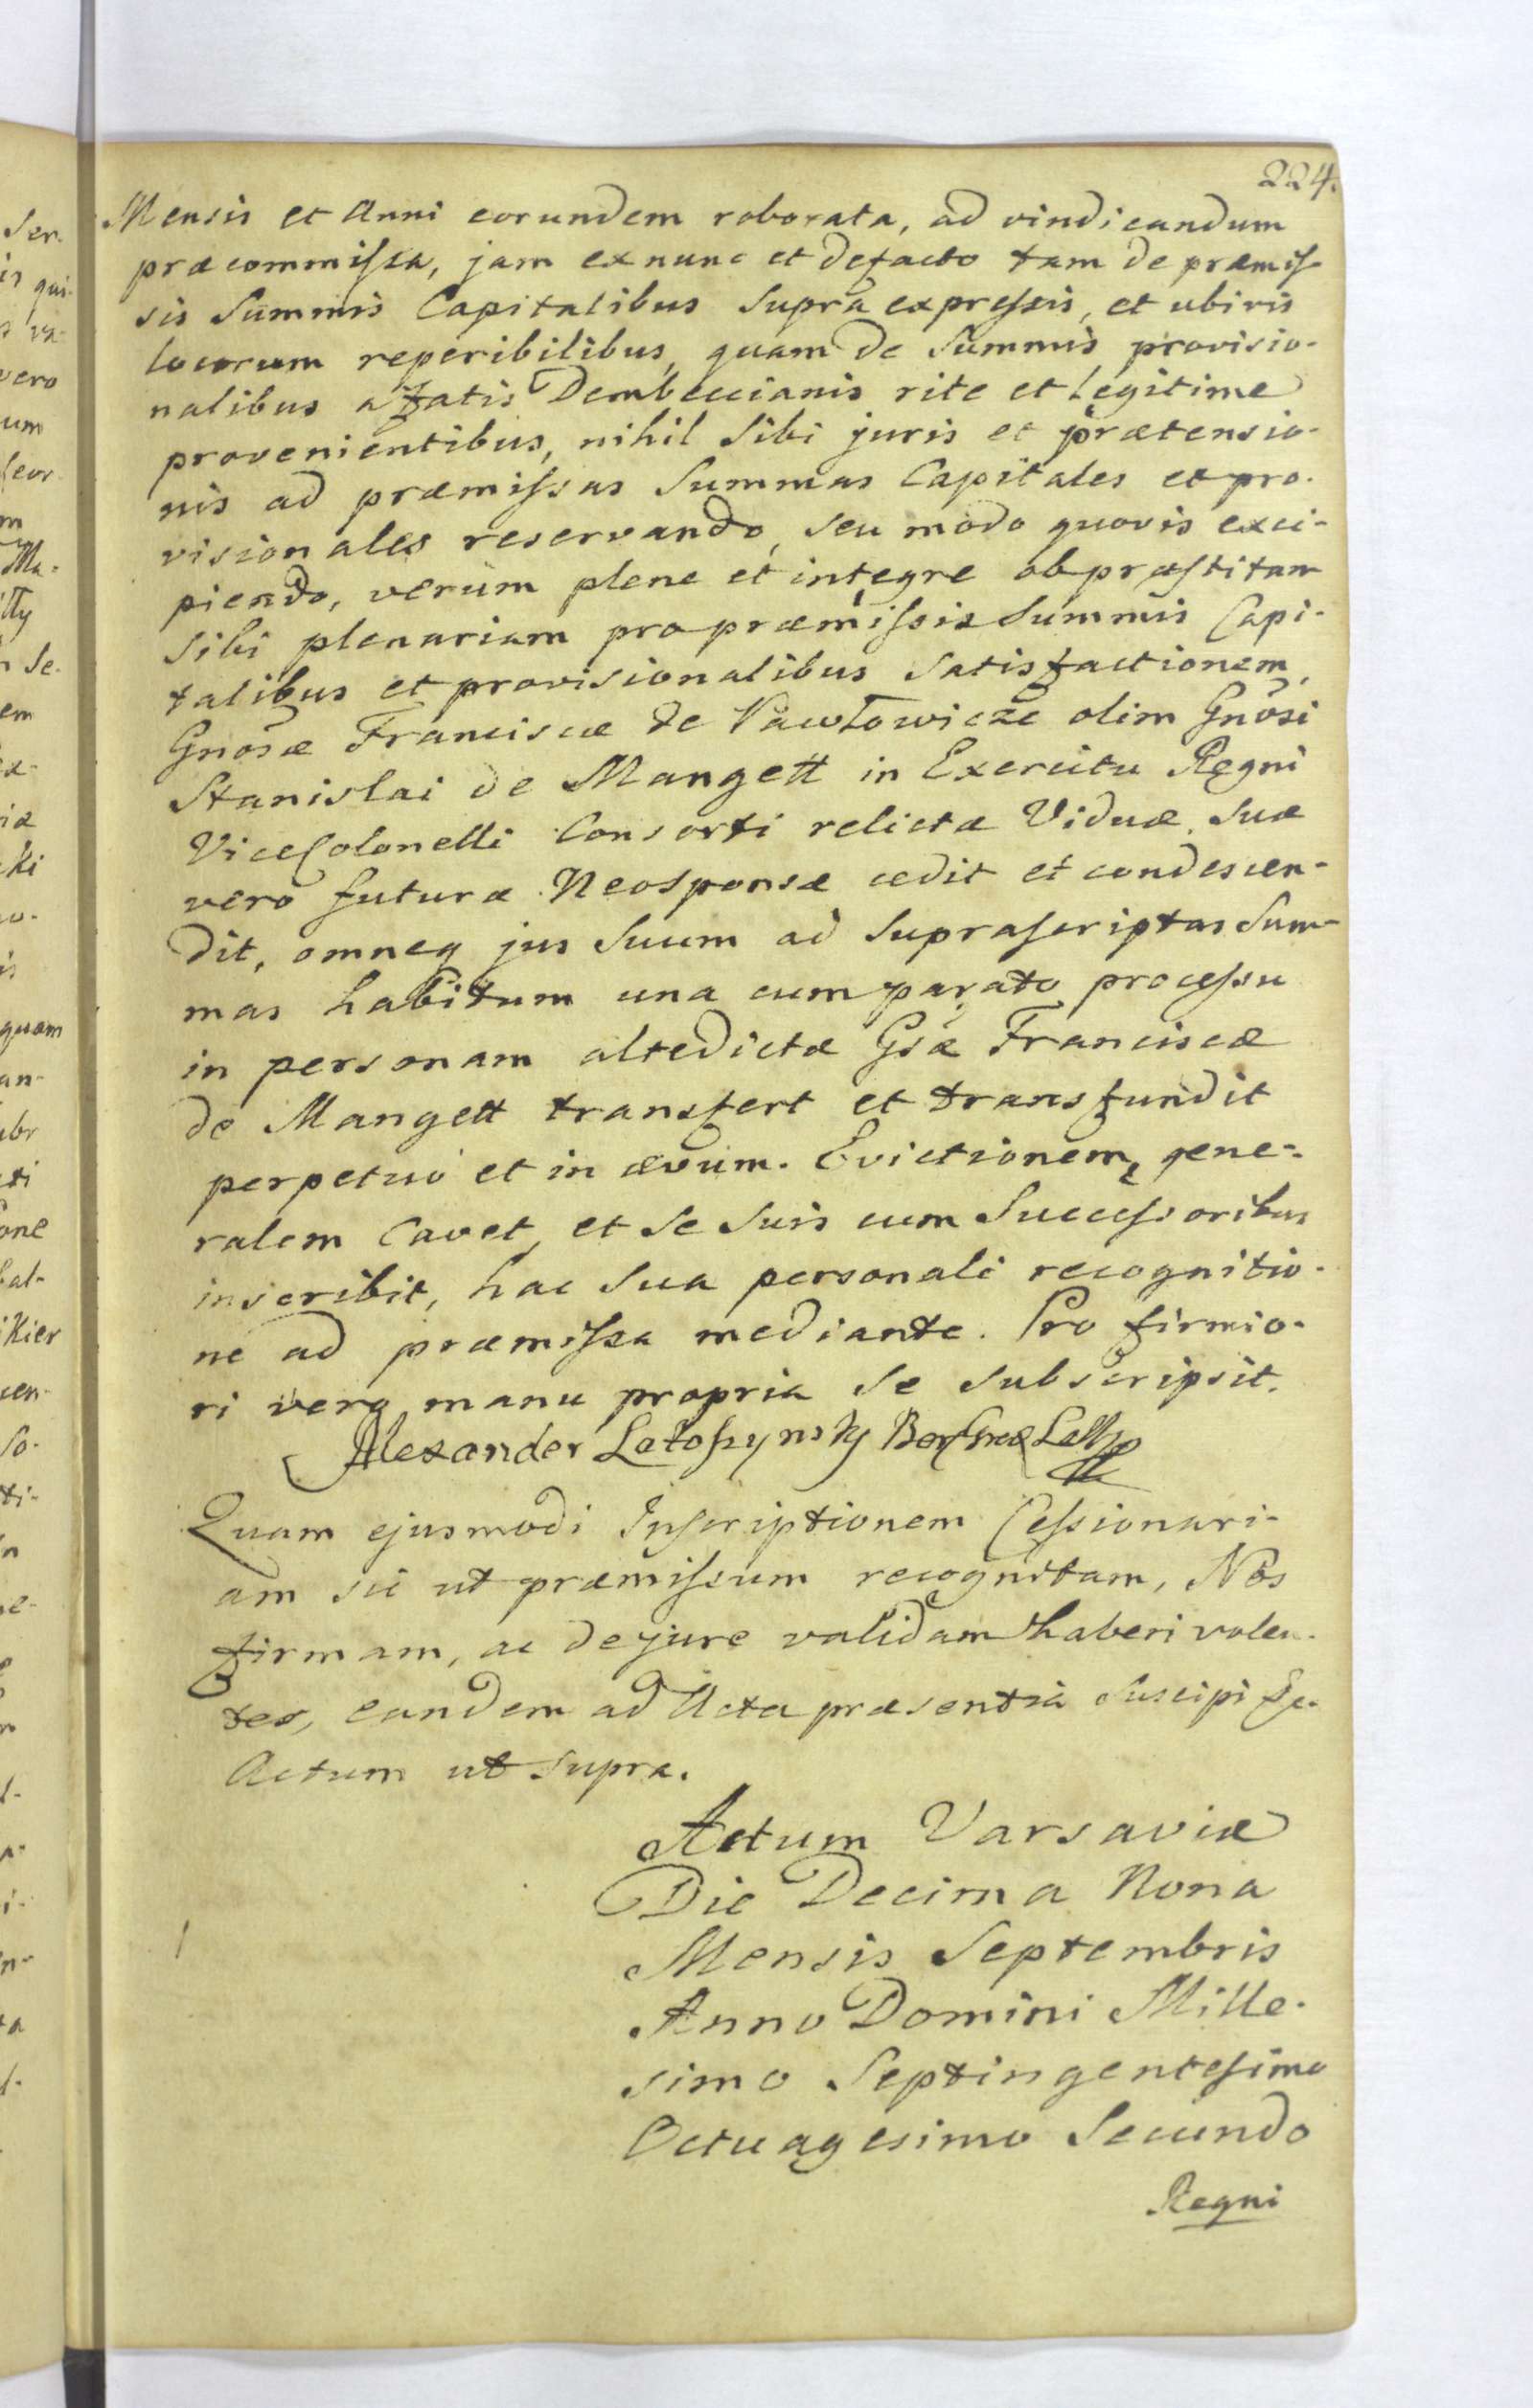 224.
Mensis et Anni eorundem roborata, ad vindicandum
præcommissa, jam exnunc et defacto tam de præmis-
sis Summis Capitalibus Supra expressis, et ubivis
locorum reperibilibus, quam de Summis provisio-
nalibus afatis Dembeccianis rite et Legitime
provenientibus, nihil Sibi juris et prætensio-
nis ad præmissas Summas Capitales et pro-
visionales reservando, seu modo quovis exci-
piendo, verum plene et integre ob præstitam
Sibi plenariam pro præmissis Summis Capi-
talibus et provisionalibus Satisfactionem,
Gnosæ Franciscæ de Pawłowicze olim Gnosi
Stanislai de Mangett in Exercitu Regni
ViceColonelli Consorti relictæ Viduæ, Suæ
vero futuræ Neosponsæ cedit et condescen-
dit, omneq jus Suum ad Suprascriptas Sum-
mas habitum una cum parato processu
in personam altedictæ Gsæ Franciscæ
de Mangett transfert et transfundit
perpetuo et in ævum. Evictionem, gene-
ralem Cavet, et Se Suis cum Successoribus
inscribit, hac Sua personali recognitio-
ne ad præmissa mediante. Pro firmio-
ri vero manu propria Se Subscripsit.
Alexander Latoszynsky
Quam ejusmodi Inscriptionem Cessionari-
am sic ut præmissum recognitam, Nos
firmam, ac de jure validam haberi volen-
tes, eandem ad Acta præsentia Suscipi &c.
Actum ut Supra.
Actum Varsaviæ
Die Decima Nona
Mensis Septembris
Anno Domini Mille-
simo Septingentesimo
Octuagesimo Secundo
Regni